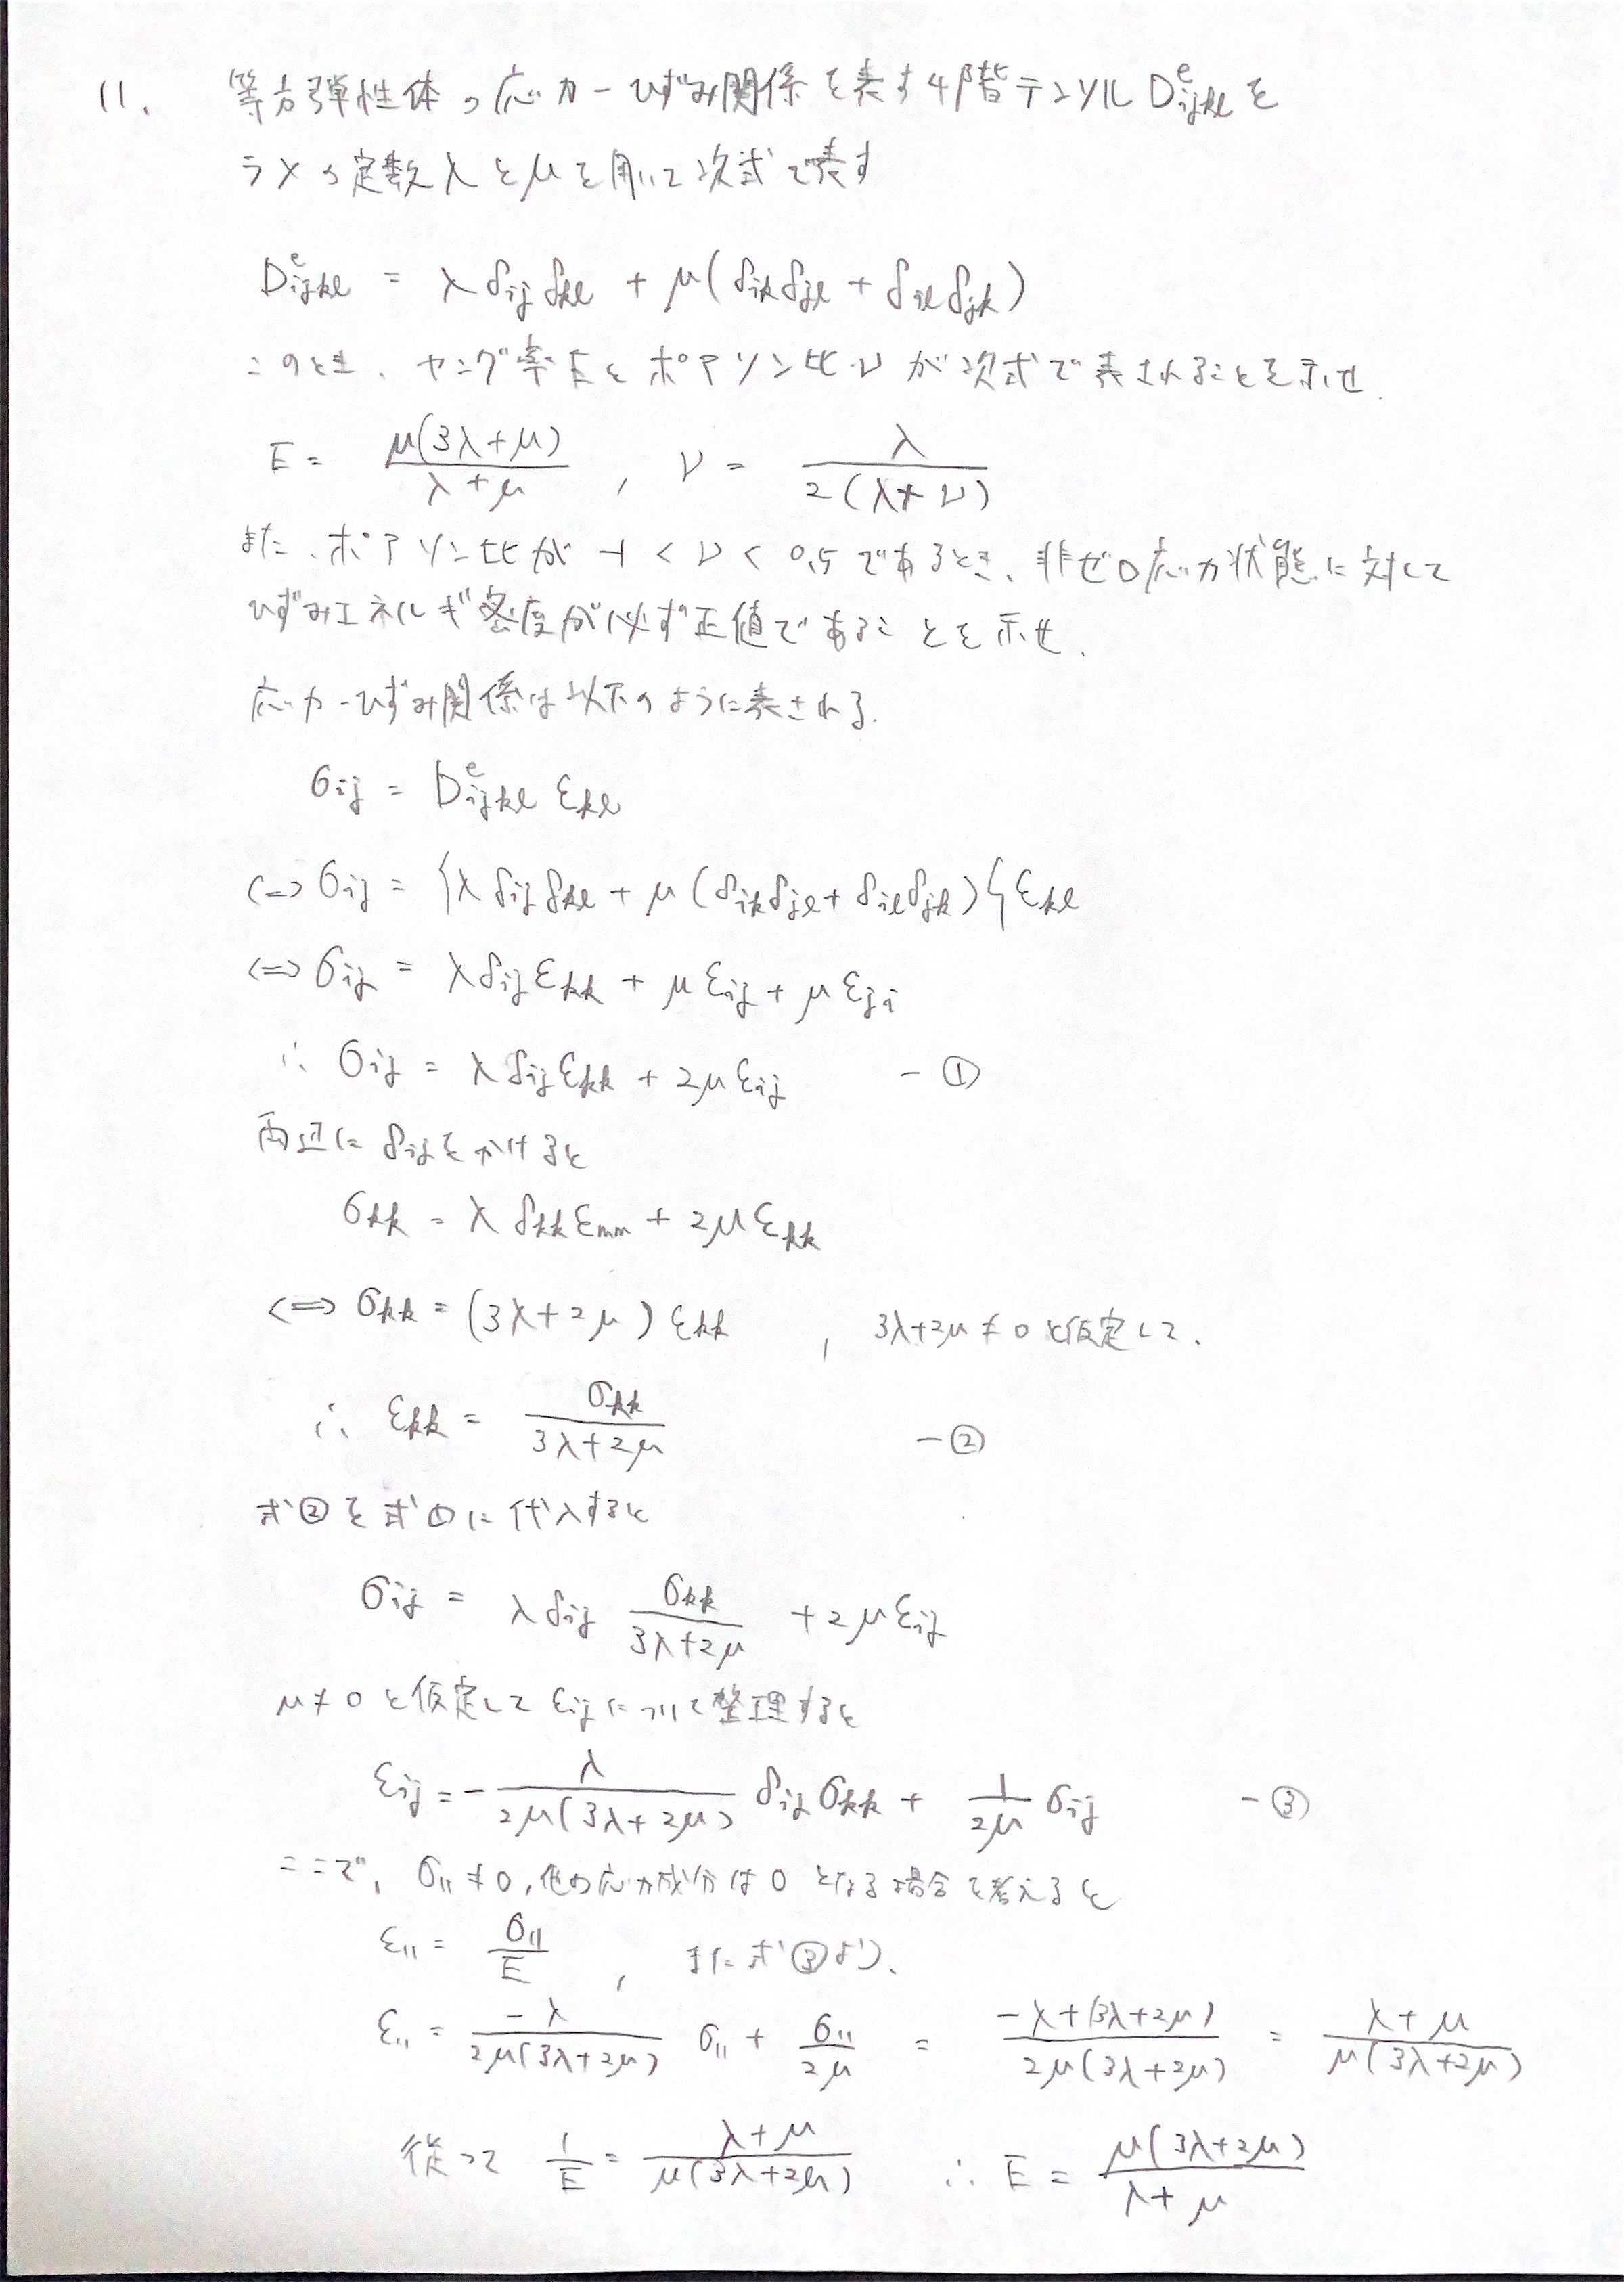 11. 等方弾性体の応力-ひずみ関係を表す4階テンソル D^e_ijkl を
ラメの定数λとμを用いて次式で表す
D^e_ijkl = λ δ_ij δ_kl + μ(δ_ik δ_jl + δ_il δ_jk)
このとき、ヤング率Eとポアソン比νが次式で表されることを示せ.
E = μ(3λ+μ)/(λ+μ) , ν = λ/(2(λ+ν))
また、ポアソン比が -1 < ν < 0.5 であるとき、非ゼロ応力状態に対して
ひずみエネルギ密度が必ず正値であることを示せ.
応力-ひずみ関係は以下のように表される.
σ_ij = D^e_ijkl ε_kl
⇔ σ_ij = {λ δ_ij δ_kl + μ(δ_ik δ_jl + δ_il δ_jk)} ε_kl
⇔ σ_ij = λ δ_ij ε_kk + μ ε_ij + μ ε_ji
∴ σ_ij = λ δ_ij ε_kk + 2μ ε_ij -①
両辺に δ_ij をかけると
σ_kk = λ δ_kk ε_mm + 2μ ε_kk
⇔ σ_kk = (3λ+2μ) ε_kk , 3λ+2μ ≠ 0 と仮定して、
∴ ε_kk = σ_kk/(3λ+2μ) -②
式②を式①に代入すると
σ_ij = λ δ_ij σ_kk/(3λ+2μ) + 2μ ε_ij
μ ≠ 0 と仮定して ε_ij について整理すると
ε_ij = - λ/(2μ(3λ+2μ)) δ_ij σ_kk + 1/(2μ) σ_ij -③
ここで、σ_11 ≠ 0, 他の応力成分は 0 となる場合を考えると
ε_11 = σ_11/E , また式③より、
ε_11 = -λ/(2μ(3λ+2μ)) σ_11 + σ_11/(2μ) = (-λ+(3λ+2μ))/(2μ(3λ+2μ)) = (λ+μ)/(μ(3λ+2μ))
従って 1/E = (λ+μ)/(μ(3λ+2μ)) ∴ E = μ(3λ+2μ)/(λ+μ)